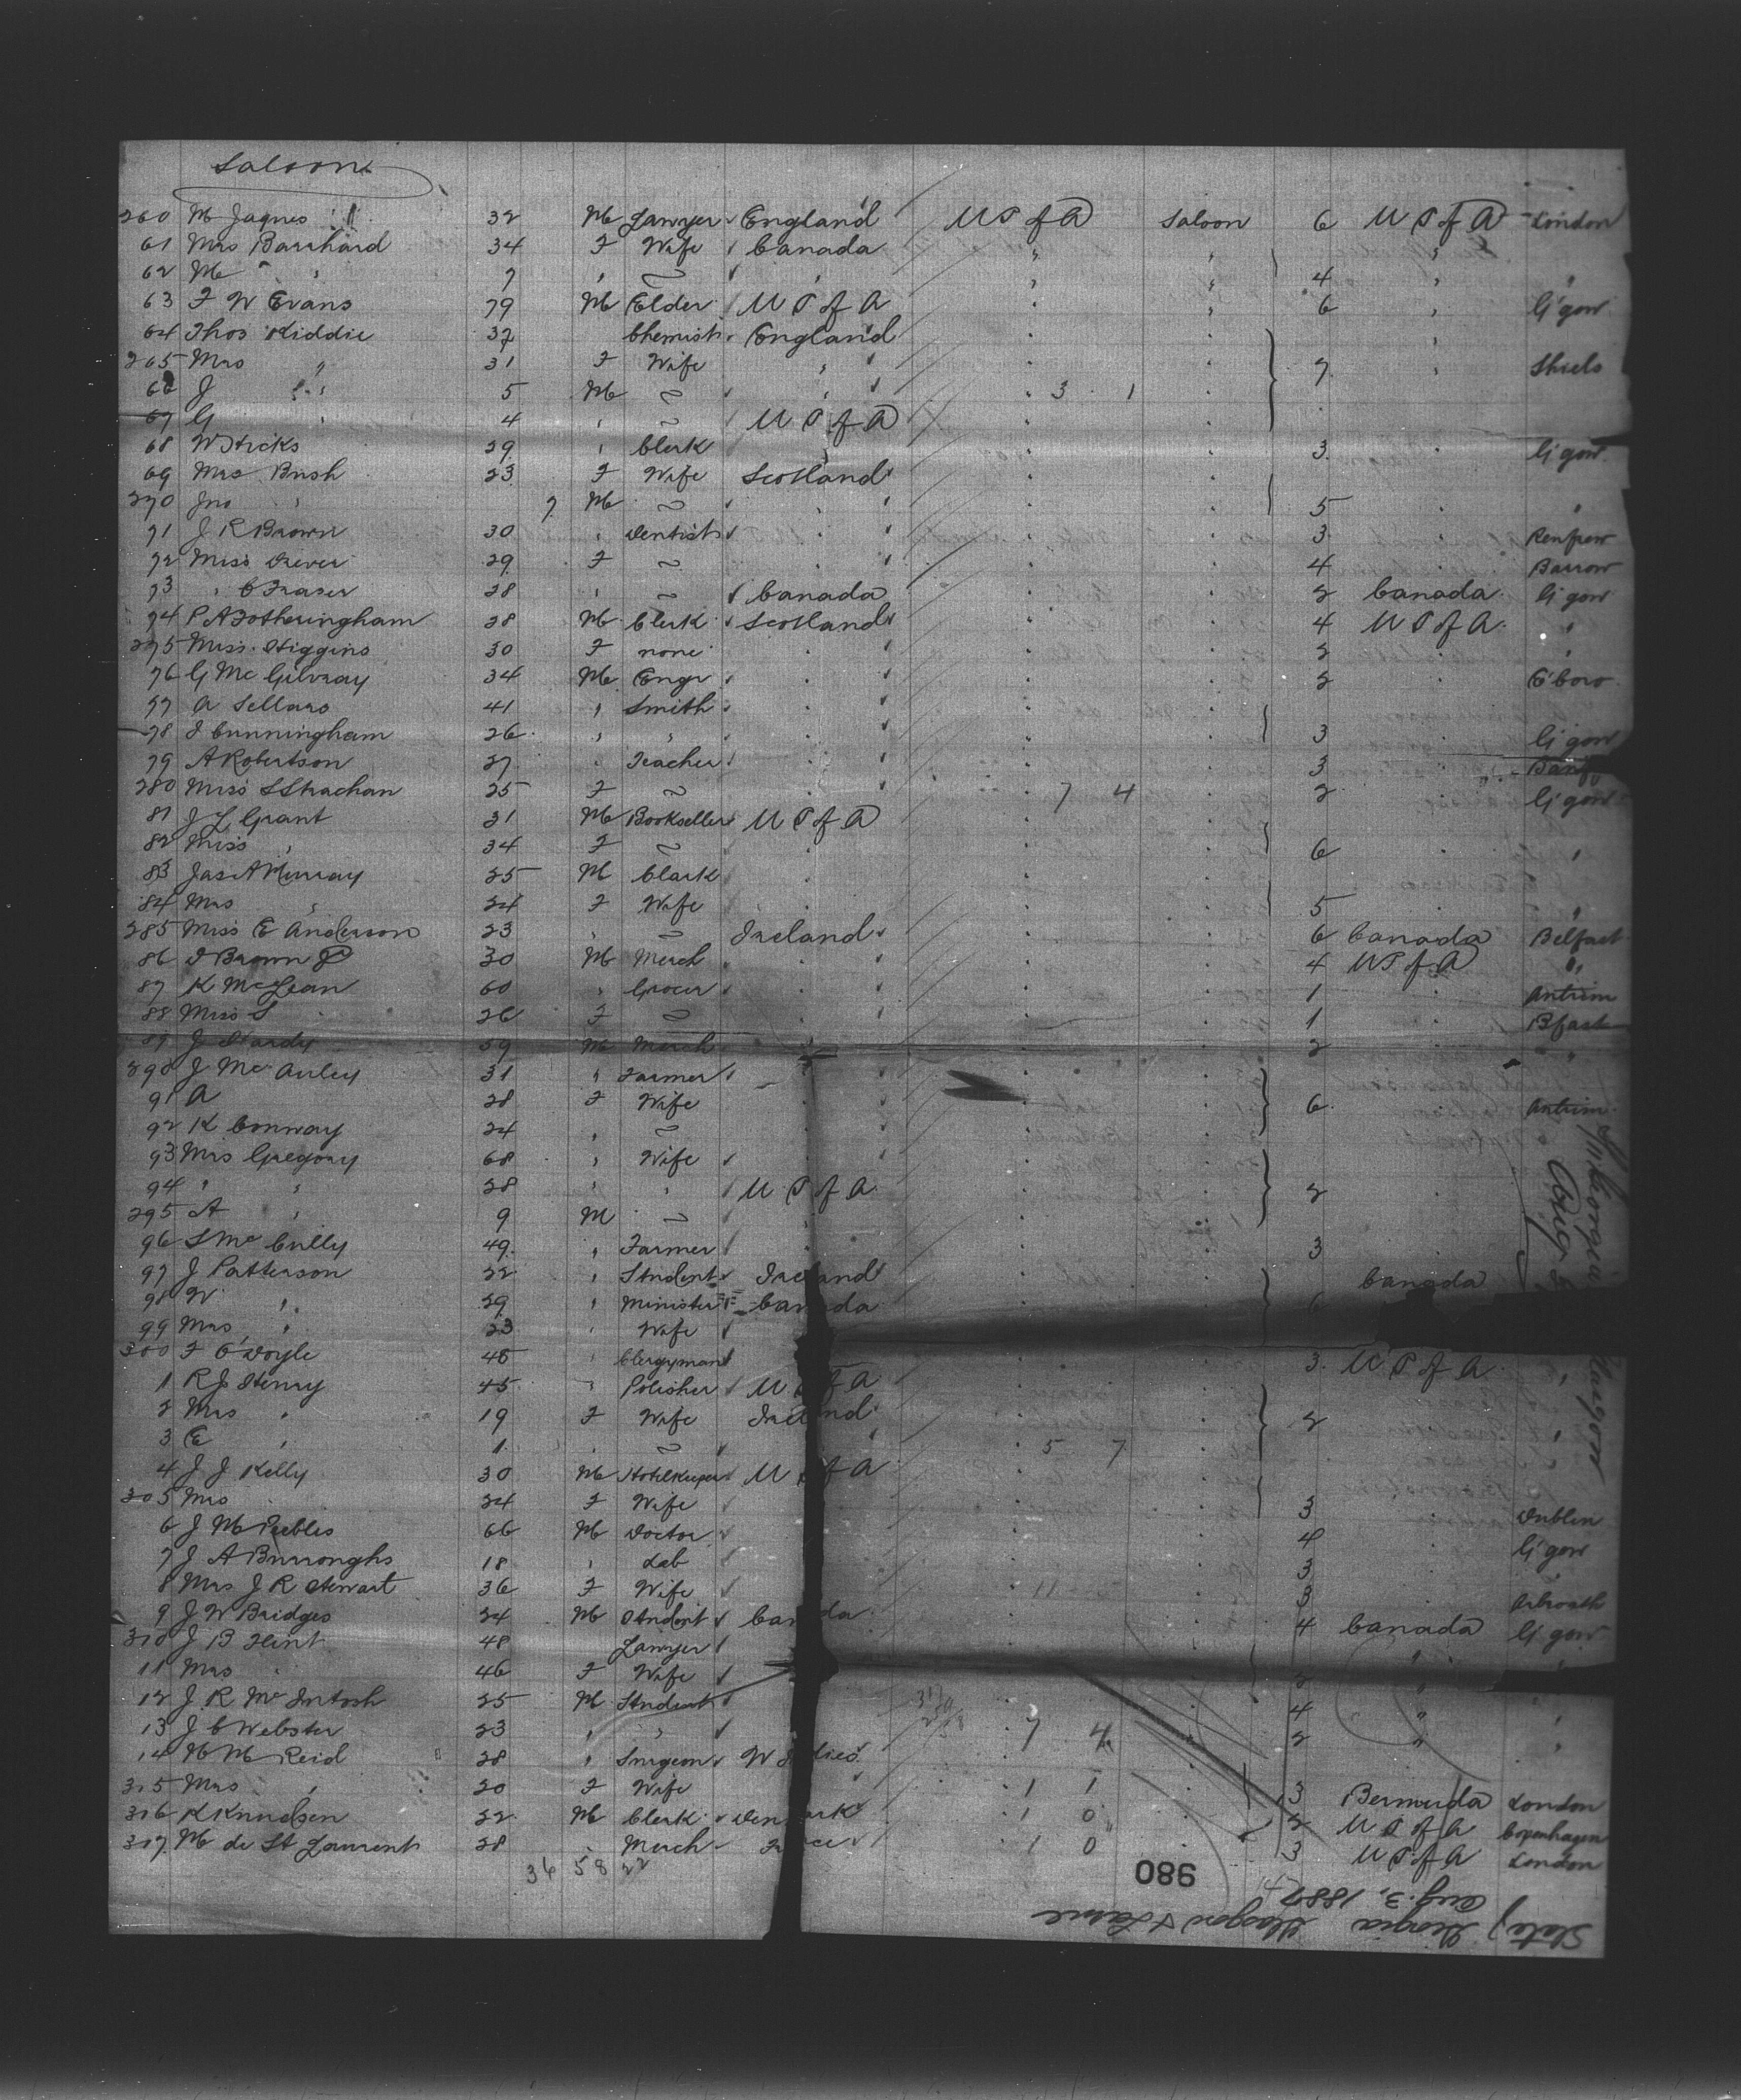 Saloon
260 M Jaques 32 M Lawyer England U S of A Saloon 6 U S of A London
61 Mrs Barnhard 34 F Wife Canada " " "
62 M " 7 " ~ " " " 4 " "
63 F W Evans 79 M Elder U S of A " " 6 " G'gow
64 Thos Kiddie 37 Chemist England " " "
265 Mrs " 31 F Wife " " " 7 " Shiels
66 J " 5 M ~ " " 3 1 "
67 G " 4 " ~ U S of A " "
68 W Hicks 29 " Clerk " " 3 " G'gow
69 Mrs Bush 23 F Wife Scotland " "
270 Jno " 7 M ~ " " " 5 " "
71 J R Brown 30 " Dentist " " " 3 " Renfrew
72 Miss Drever 29 F ~ " " " 4 " Barrow
73 " C Fraser 28 " ~ Canada " " 2 Canada G'gow
74 P A Fotheringham 28 M Clerk Scotland " " 4 U S of A "
275 Miss Higgins 30 F none " " " 2 " "
76 G Mc Gilvray 34 M Engr " " " 2 " E'boro
77 A Sellars 41 " Smith " " "
78 J Cunningham 26 " " " " " 3 " G'gow
79 A Robertson 27 " Teacher " " " 3 " Banf
280 Miss S Strachan 25 F ~ " " 7 4 " 2 " G'gow
81 J L Grant 31 M Bookseller U S of A " "
82 Miss " 34 F ~ " " " 6 " "
83 Jas A Murray 25 M Clark " " "
84 Mrs " 24 F Wife " " " 5 " "
285 Miss E Anderson 23 " ~ Ireland " " 6 Canada Belfast
86 J Brown 30 M Merch " " " 4 U S of A "
87 K McLean 60 " Grocer " " " 1 " Antrim
88 Miss S " 26 F ~ " " " 1 " Bfast
89 J Hardy 39 M Merch " " " 2 " "
290 J Mc Auley 31 " Farmer " " "
91 A 28 F Wife " " " 6 " Antrim
92 K Conway 24 " ~ " " "
93 Mrs Gregory 68 " Wife " "
94 " " 28 " " U S of A " " 2 "
295 A " 9 M ~ " " "
96 S Mc Cully 49 " Farmer " " " 3 "
97 J Patterson 22 " Student Ireland " " Canada
98 W " 29 " Minister Canada 6
99 Mrs " 23 " Wife
300 F C Doyle 45 " Clergyman 3 U S of A "
1 R J Henry 45 " Polisher U S of A " "
2 Mrs " 19 F Wife Ireland " " 2 "
3 E " 1 " ~ " 5 7 " "
4 J J Kelly 30 M Hotelkeeper U S of A " "
305 Mrs " 24 F Wife " " 3 " Dublin
6 J M Peebles 66 M Doctor " " 4 " G'gow
7 J A Burroughs 18 " Lab " " 3 " "
8 Mrs J R Stewart 36 F Wife 11 " 3 " Arbroath
9 J W Bridges 24 M Student Canada " " 4 Canada G'gow
310 J B Flint 48 Lawyer " "
11 Mrs " 46 F Wife 2 " "
12 J R Mc Intosh 25 M Student 4 " "
13 J C Webster 23 " " 7 4 2 " "
14 M M Reid 28 " Surgeon W Indies
315 Mrs " 20 F Wife 1 1 3 Bermuda London
316 K Knudsen 22 M Clerk Denmark 1 0 2 U S of A Copenhagen
317 M de St Laurent 28 " Merch France 1 0 3 U S of A London
34 58 22
980
State of Georgia Glasgow & Larne
Aug. 3, 1887